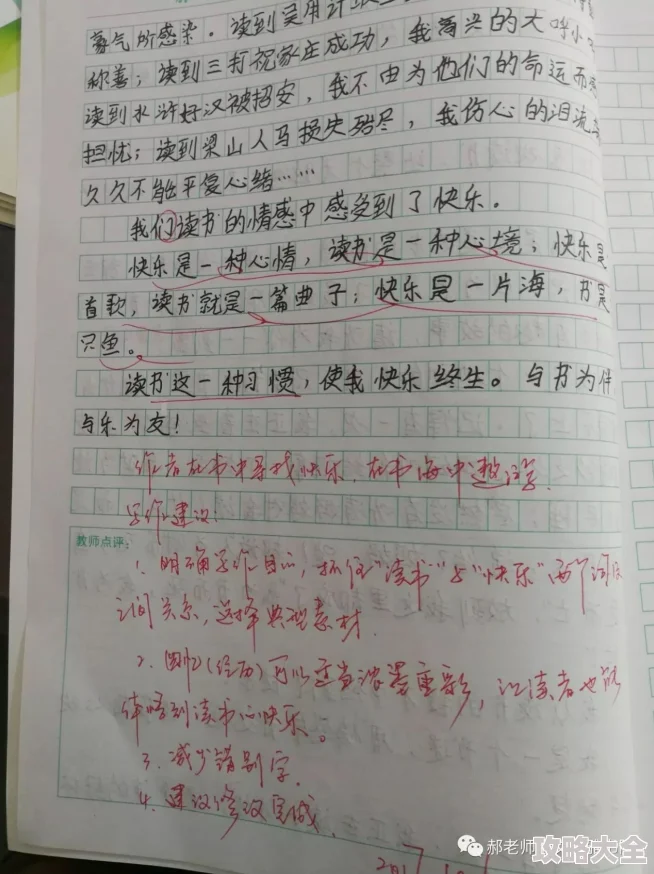 豪气所感染。读到吴用计
称善；读到三打祝家庄成功，我高兴的大呼小
读到水浒好汉被招安，我不由为他们的命运而
担忧；读到梁山人马损失殆尽，我伤心的泪流
久久不能平复心绪……
我们读书的情感中感受到了快乐。
快乐是一种心情，读书是一种心境；快乐是
首歌，读书就是一篇曲子；快乐是一片海，书是
只鱼。
读书这一种习惯，使我快乐终生。与书为伴
与乐为友！
作者在书中寻找快乐，在书海中遨游
写作建议：
教师点评：
1. 明确写作目的，抓住"读书"与"快乐"两个词
之间关系，选择典型素材.
2. 回忆(经历)可以适当浓墨重彩，让读者也能
体悟到读书的快乐。
3. 减少错别字.
4. 建议修改
2017
郝老师
攻略大全